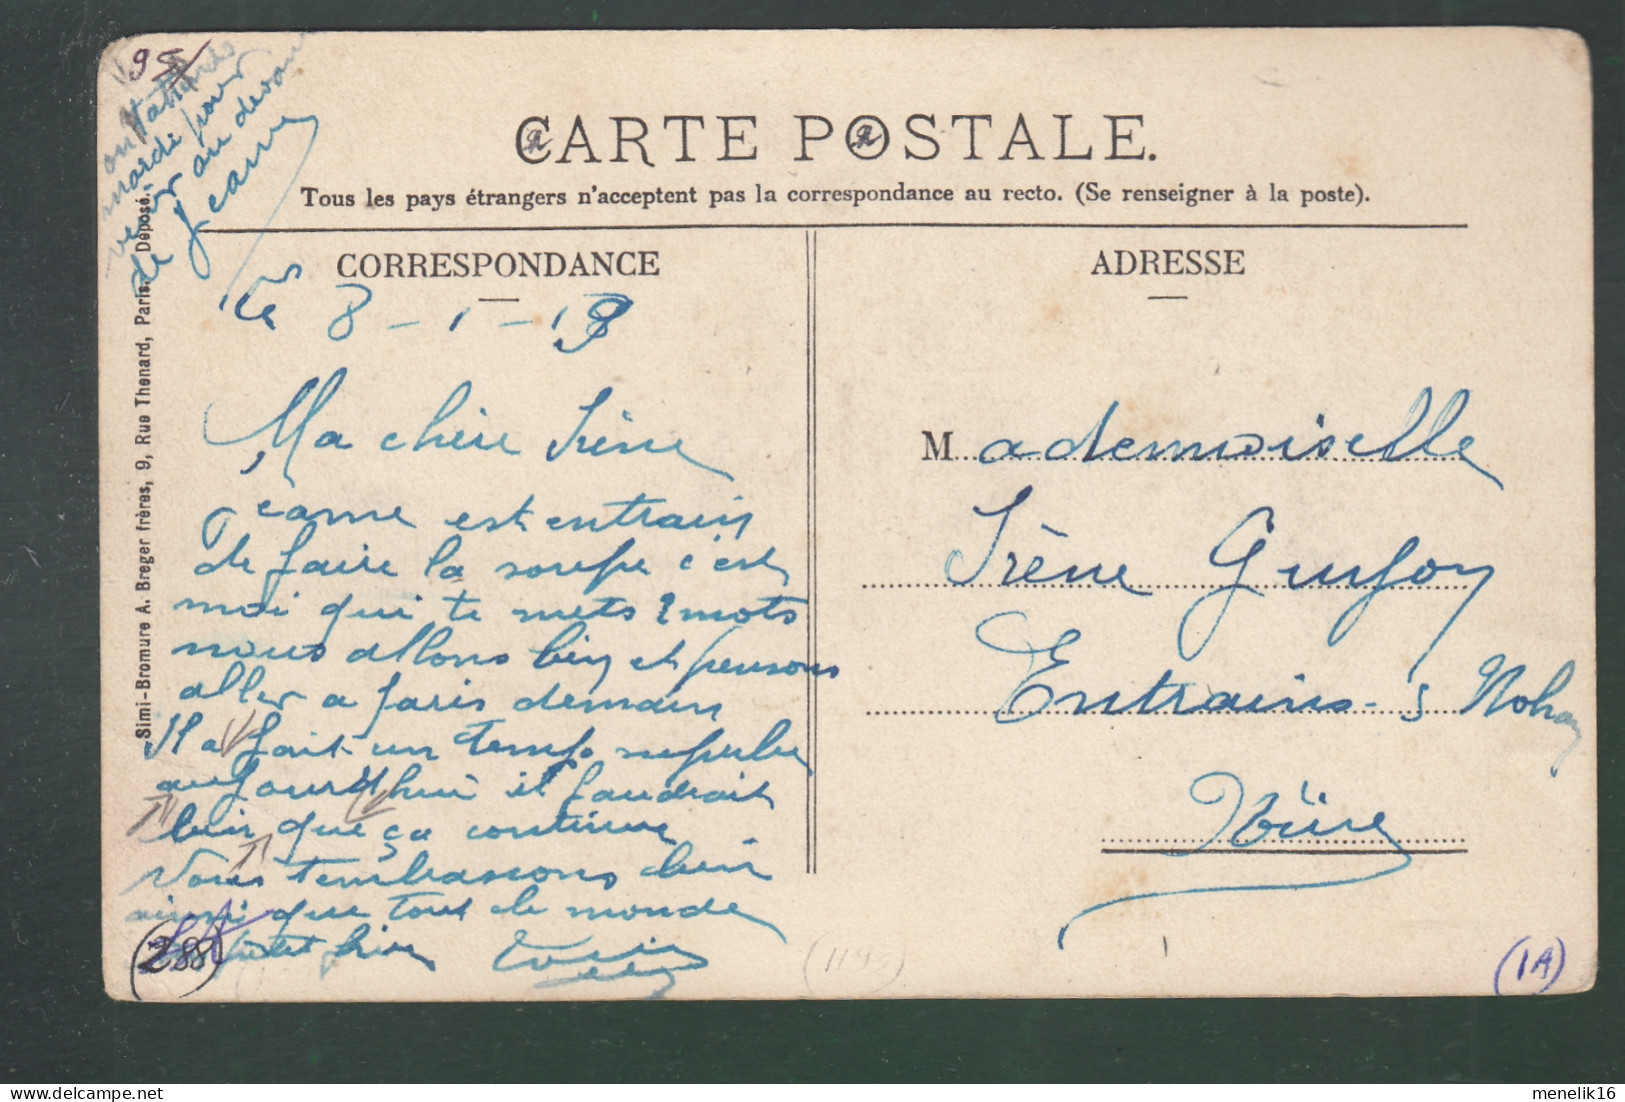 95
on t'attends
mardi pour
venir au devant
de
Jeanne
CARTE POSTALE.
Tous les pays étrangers n'acceptent pas la correspondance au recto. (Se renseigner à la poste).
CORRESPONDANCE
Le 8-1-19
Ma chère Irène
Jeanne est entrain
de faire la soupe c'est
moi qui te mets 2 mots
nous allons bien et pensons
aller a Paris demain
Il a fait un temps superbe
aujourd'hui il faudrait
bien que ça continue
Nous t'embrassons bien
ainsi que tout le monde
(288)
ADRESSE
Mademoiselle
Irène
Entrains-s Nohain
Nièvre
(1A)
Simi-Bromure A. Breger frères, 9, Rue Thenard, Paris. Déposé.
menelik16